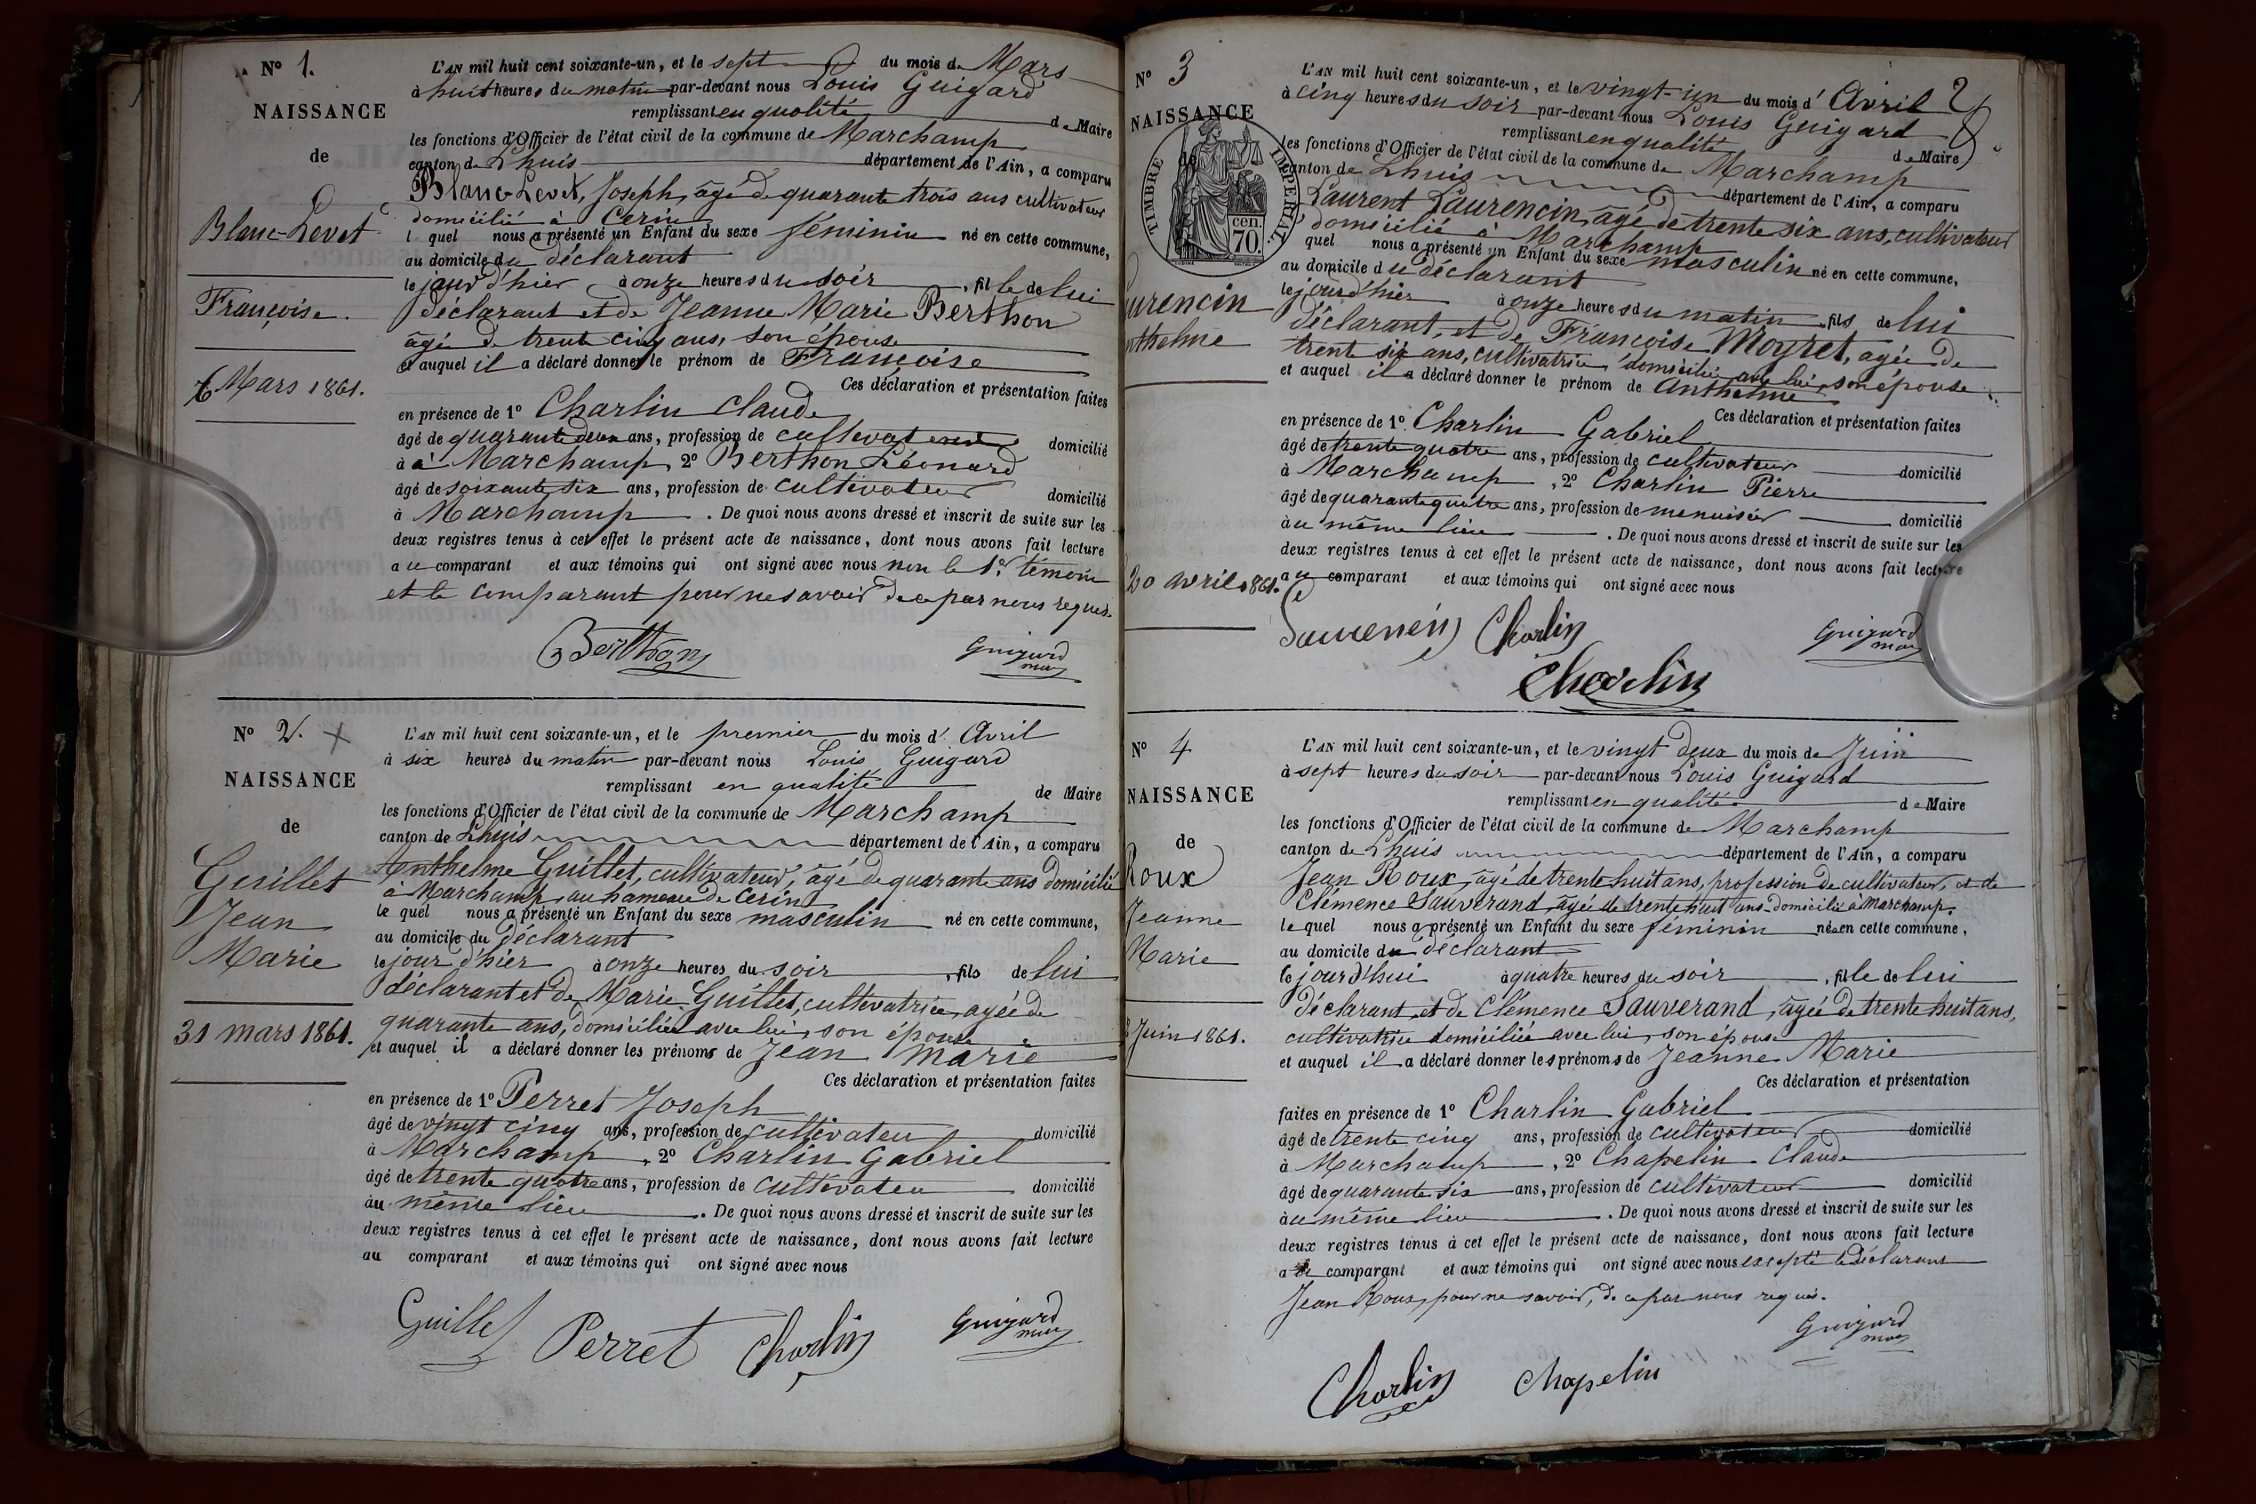 N° 1.
NAISSANCE
de
Blanc-Levet
Françoise.
6 Mars 1861.
L'AN mil huit cent soixante-un, et le sept du mois de Mars
à huit heures du matin par-devant nous Louis Guigard
remplissant en qualité de Maire
les fonctions d'Officier de l'état civil de la commune de Marchamp
canton de Lhuis département de l'Ain, a comparu
Blanc-Levet, Joseph, âgé de quarante trois ans cultivateur
domicilié à Cerin
l quel nous a présenté un Enfant du sexe féminin né en cette commune,
au domicile du déclarant
le jour d'hier à onze heures du soir, fille de lui
déclarant et de Jeanne Marie Berthon
âgée de trente cinq ans, son épouse
et auquel il a déclaré donner le prénom de Françoise
Ces déclaration et présentation faites
en présence de 1° Charlin Claude
âgé de quarante deux ans, profession de cultivateur domicilié
à à Marchamp, 2° Berthon Léonard
âgé de soixante six ans, profession de cultivateur domicilié
à Marchamp. De quoi nous avons dressé et inscrit de suite sur les
deux registres tenus à cet effet le présent acte de naissance, dont nous avons fait lecture
au comparant et aux témoins qui ont signé avec nous non le 1er témoin
et le comparant pour ne savoir de ce par nous requis.
Berthon Guigard
maire
N° 2.
NAISSANCE
de
Guillet
Jean
Marie
31 mars 1861.
L'AN mil huit cent soixante-un, et le premier du mois d' Avril
à six heures du matin par-devant nous Louis Guigard
remplissant en qualité de Maire
les fonctions d'Officier de l'état civil de la commune de Marchamp
canton de Lhuis département de l'Ain, a comparu
Anthelme Guillet, cultivateur, âgé de quarante ans domicilié
à Marchamp, au hameau de Cerin
le quel nous a présenté un Enfant du sexe masculin né en cette commune,
au domicile du déclarant
le jour d'hier à onze heures du soir, fils de lui
déclarant et de Marie Guillet, cultivatrice, agée de
quarante ans, domiciliée avec lui, son épouse
et auquel il a déclaré donner les prénoms de Jean Marie
Ces déclaration et présentation faites
en présence de 1° Perret Joseph
âgé de vingt cinq ans, profession de cultivateur domicilié
à Marchamp, 2° Charlin Gabriel
âgé de trente quatre ans, profession de cultivateur domicilié
au même lieu. De quoi nous avons dressé et inscrit de suite sur les
deux registres tenus à cet effet le présent acte de naissance, dont nous avons fait lecture
au comparant et aux témoins qui ont signé avec nous
Guillet Perret Charlin Guigard
maire
2
N° 3
NAISSANCE
de
TIMBRE IMPERIAL
70 cen.
urencin
nthelme
20 avril 1861.
L'AN mil huit cent soixante-un, et le vingt-un du mois d' Avril
à cinq heures du soir par-devant nous Louis Guigard
remplissant en qualité de Maire
les fonctions d'Officier de l'état civil de la commune de Marchamp
canton de Lhuis département de l'Ain, a comparu
Laurent Laurencin, âgé de trente six ans, cultivateur
domicilié à Marchamp
quel nous a présenté un Enfant du sexe masculin né en cette commune,
au domicile du déclarant
le jour d'hier à onze heures du matin, fils de lui
déclarant, et de Françoise Moyret, agée de
trente six ans, cultivatrice domiciliée avec lui, son épouse
et auquel il a déclaré donner le prénom de Anthelme
Ces déclaration et présentation faites
en présence de 1° Charlin Gabriel
âgé de trente quatre ans, profession de cultivateur domicilié
à Marchamp, 2° Charlin Pierre
âgé de quarante quatre ans, profession de menuisier domicilié
au même lieu. De quoi nous avons dressé et inscrit de suite sur les
deux registres tenus à cet effet le présent acte de naissance, dont nous avons fait lecture
au comparant et aux témoins qui ont signé avec nous
Charlin Guigard
maire
Charlin
N° 4
NAISSANCE
de
Roux
Jeanne
Marie
Juin 1861.
L'AN mil huit cent soixante-un, et le vingt deux du mois de Juin
à sept heures du soir par-devant nous Louis Guigard
remplissant en qualité de Maire
les fonctions d'Officier de l'état civil de la commune de Marchamp
canton de Lhuis département de l'Ain, a comparu
Jean Roux, âgé de trente huit ans, profession de cultivateur, et de
Clémence Sauverand, agée de trente huit ans domicilié à Marchamp.
le quel nous a présenté un Enfant du sexe féminin née en cette commune,
au domicile du déclarant
le jourd'hui à quatre heures du soir, fille de lui
déclarant, et de Clémence Sauverand, âgée de trente huit ans,
cultivatrice domiciliée avec lui, son épouse
et auquel il a déclaré donner les prénoms de Jeanne Marie
Ces déclaration et présentation
faites en présence de 1° Charlin Gabriel
âgé de trente cinq ans, profession de cultivateur domicilié
à Marchamp, 2° Chapelin Claude
âgé de quarante six ans, profession de cultivateur domicilié
au même lieu. De quoi nous avons dressé et inscrit de suite sur les
deux registres tenus à cet effet le présent acte de naissance, dont nous avons fait lecture
au comparant et aux témoins qui ont signé avec nous excepté le déclarant
Jean Roux, pour ne savoir, de ce par nous requis.
Guigard
maire
Charlin Chapelin